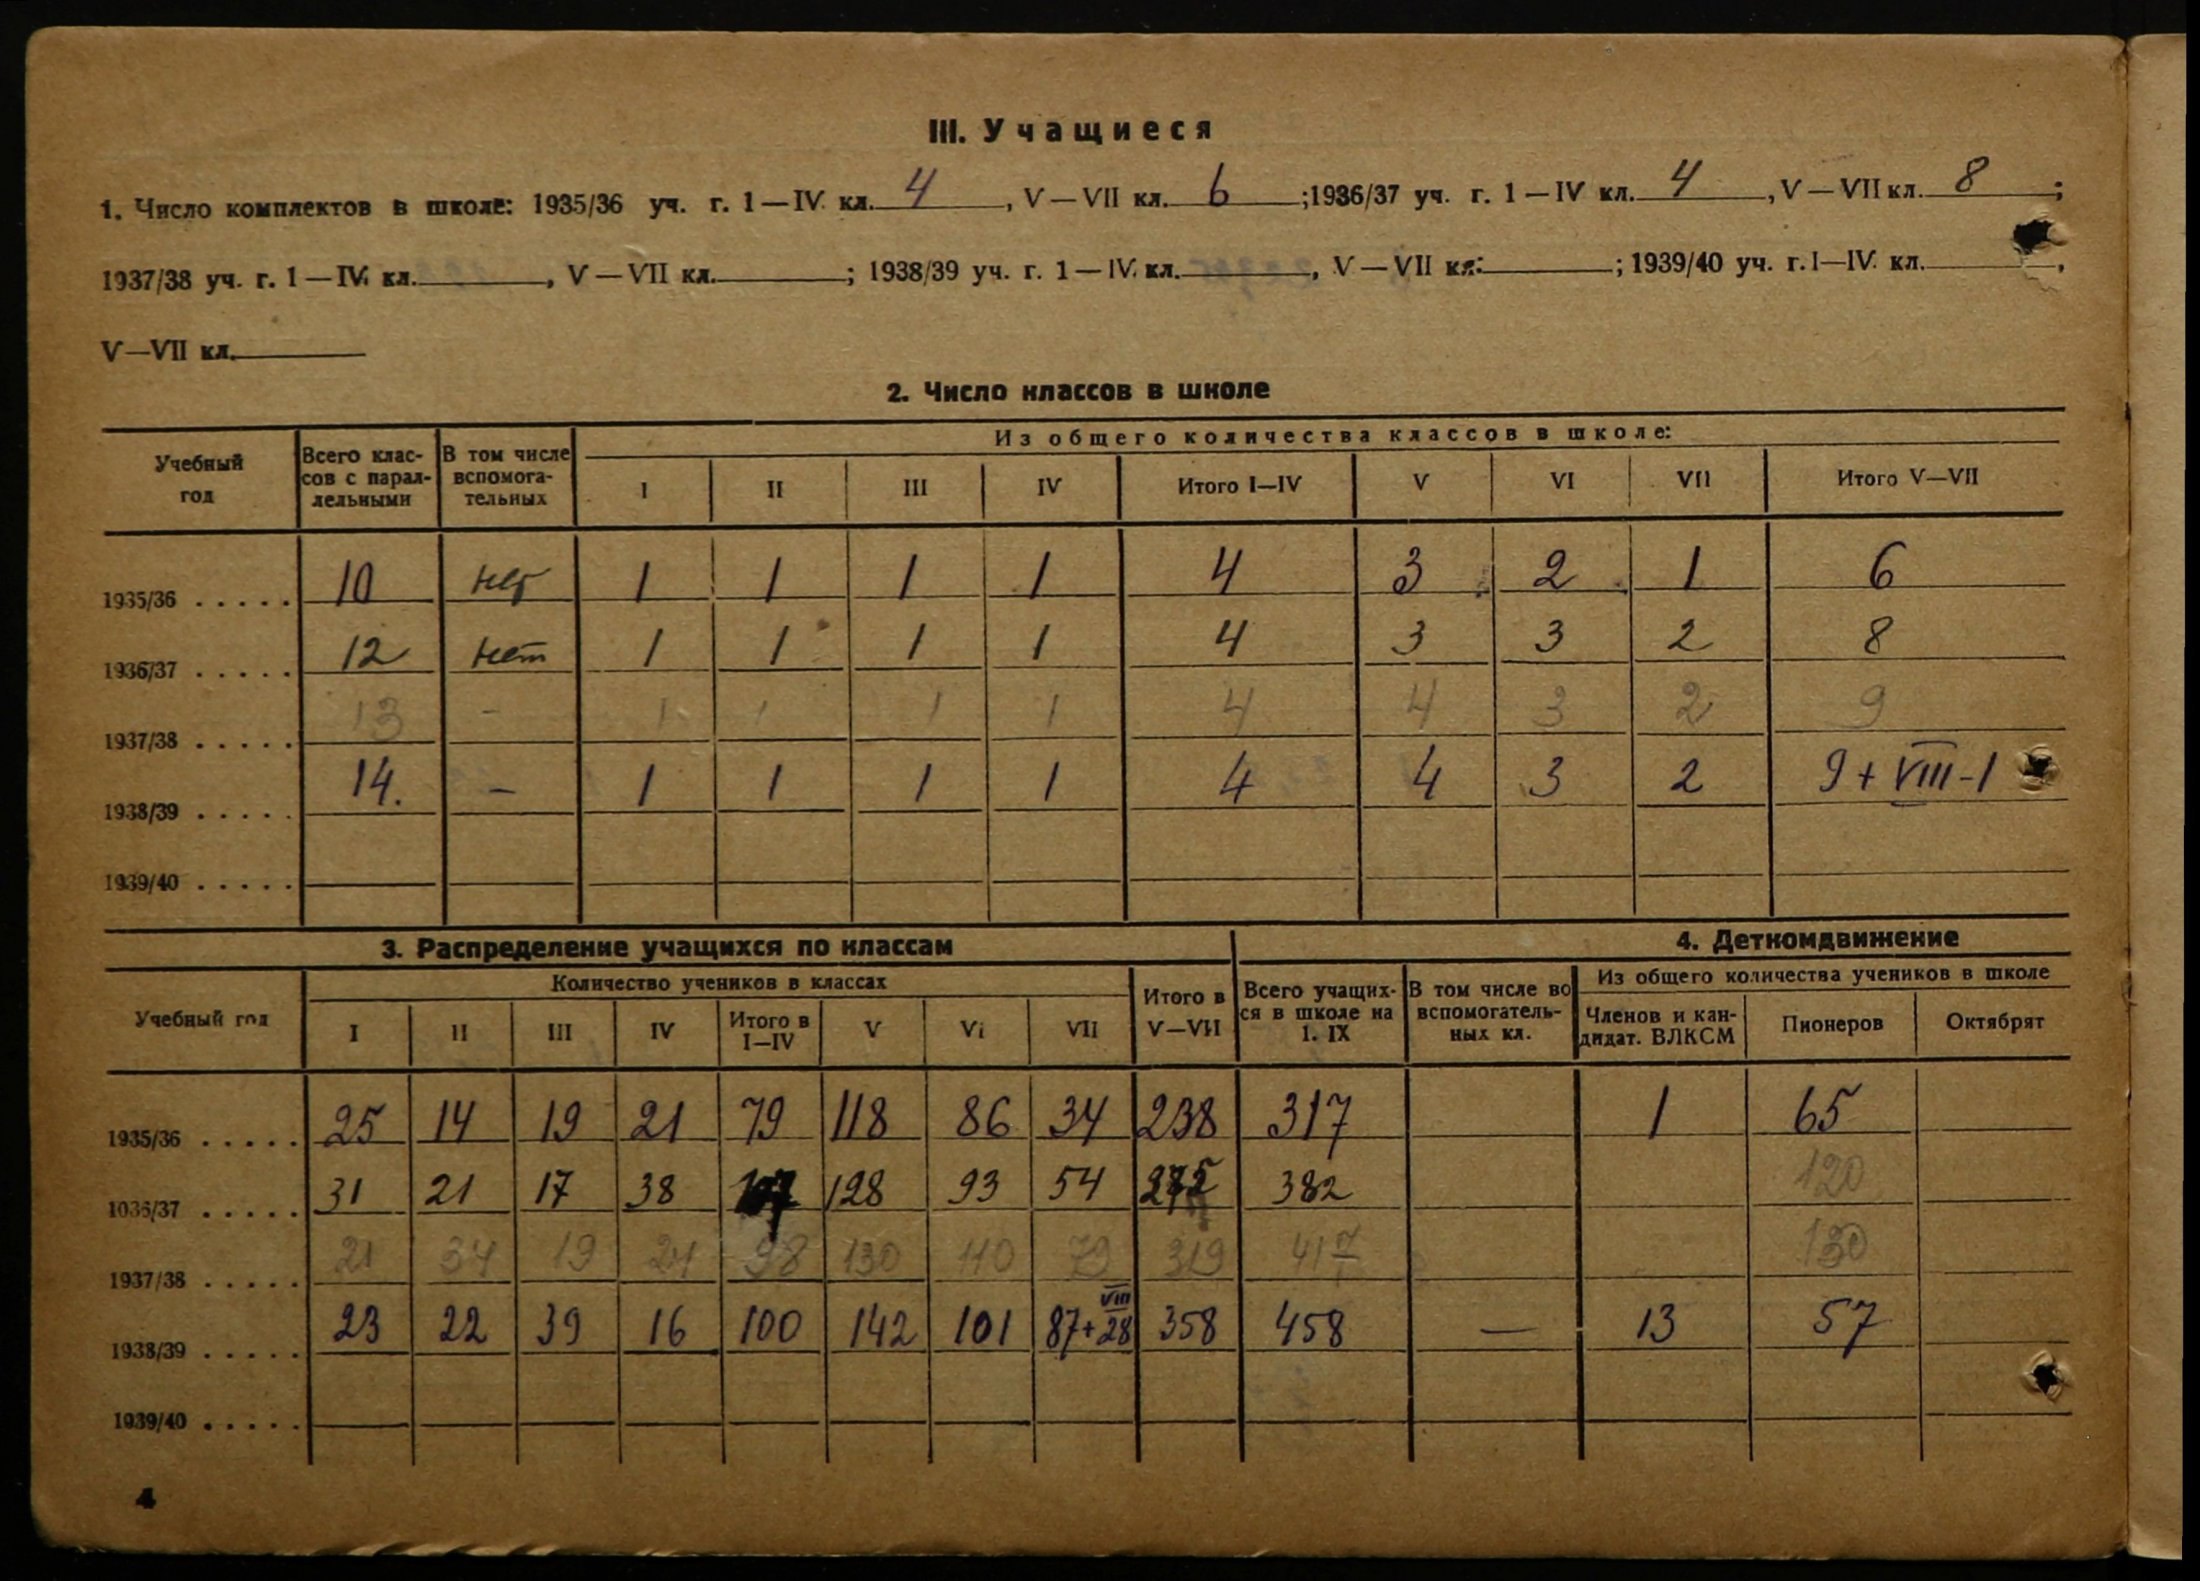 III. Учащиеся
1. Число комплектов в школе: 1935/36 уч. г. 1—IV кл. 4, V—VII кл. 6; 1936/37 уч. г. 1—IV кл. 4, V—VII кл. 8;
1937/38 уч. г. 1—IV кл. , V—VII кл. ; 1938/39 уч. г. 1—IV кл. , V—VII кл. ; 1939/40 уч. г. I—IV кл. ,
V—VII кл.
2. Число классов в школе
Учебный год | Всего классов с параллельными | В том числе вспомогательных | Из общего количества классов в школе:
I | II | III | IV | Итого I—IV | V | VI | VII | Итого V—VII
1935/36 . . . . . 10 нет 1 1 1 1 4 3 2 1 6
1936/37 . . . . . 12 нет 1 1 1 1 4 3 3 2 8
1937/38 . . . . . 13 - 1 1 1 1 4 4 3 2 9
1938/39 . . . . . 14. - 1 1 1 1 4 4 3 2 9 + VIII - 1
1939/40 . . . . .
3. Распределение учащихся по классам
4. Деткомдвижение
Учебный год | Количество учеников в классах | Итого в V—VII | Всего учащихся в школе на 1. IX | В том числе во вспомогательных кл. | Из общего количества учеников в школе
I | II | III | IV | Итого в I—IV | V | VI | VII | Членов и кандидат. ВЛКСМ | Пионеров | Октябрят
1935/36 . . . . . 25 14 19 21 79 118 86 34 238 317 1 65
1036/37 . . . . . 31 21 17 38 107 128 93 54 275 382 120
1937/38 . . . . . 21 34 19 24 98 130 110 79 319 417 130
1938/39 . . . . . 23 22 39 16 100 142 101 87+28 VIII 358 458 — 13 57
1939/40 . . . . .
4